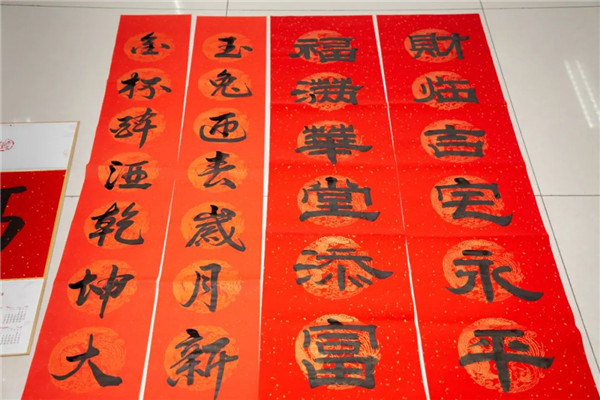 財临吉宅永平
福满華堂添富
玉兔迎春歲月新
金杯醉酒乾坤大